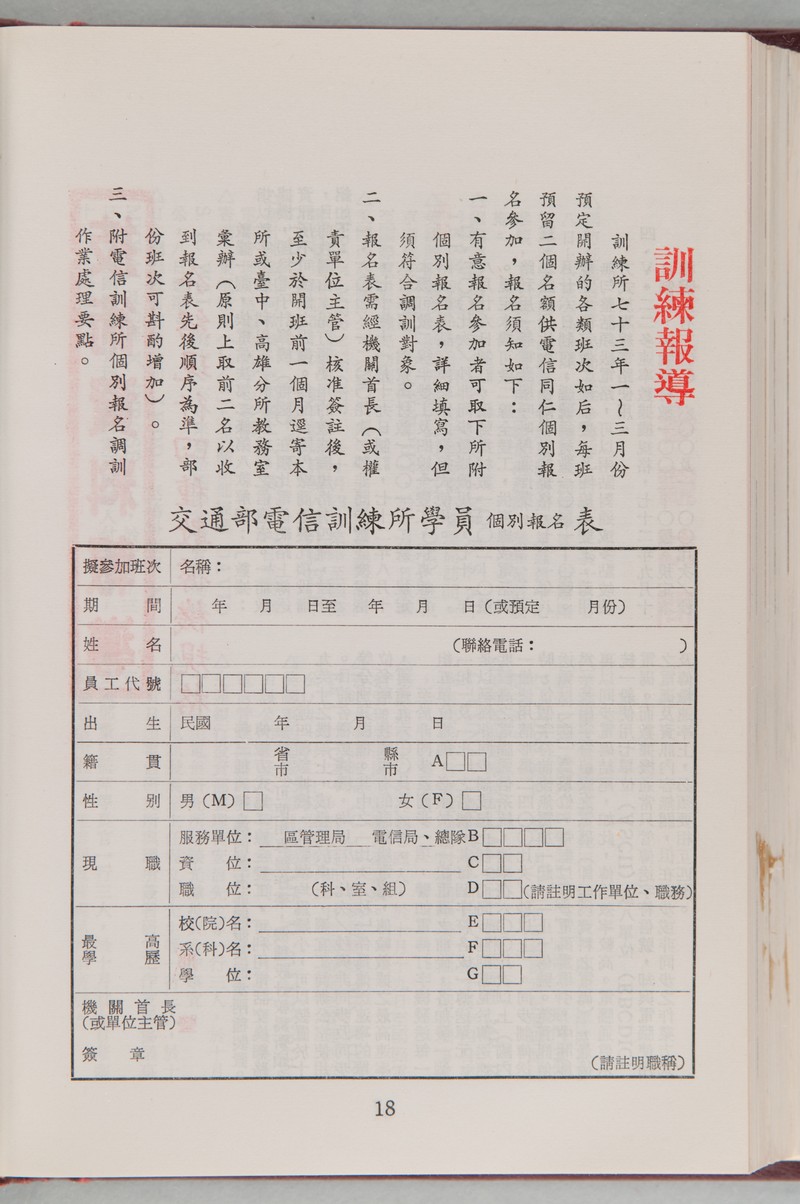 訓練報導
訓練所七十三年一～三月份
預定開辦的各類班次如后，每班
預留二個名額供電信同仁個別報
名參加，報名須知如下：
一、有意報名參加者可取下所附
個別報名表，詳細填寫，但
須符合調訓對象。
二、報名表需經機關首長（或權
責單位主管）核准簽註後，
至少於開班前一個月逕寄本
所或臺中、高雄分所教務室
彙辦（原則上取前二名以收
到報名表先後順序為準，部
份班次可斟酌增加）。
三、附電信訓練所個別報名調訓
作業處理要點。
交通部電信訓練所學員個別報名表
擬參加班次 名稱：
期 間 年 月 日至 年 月 日（或預定 月份）
姓 名 （聯絡電話： ）
員工代號 □□□□□□
出 生 民國 年 月 日
籍 貫 省市 縣市 A□□
性 別 男（M）□ 女（F）□
現 職 服務單位：＿區管理局＿電信局、總隊B□□□□
資 位：＿＿＿＿ C□□
職 位： （科、室、組） D□□（請註明工作單位、職務）
最高學歷 校（院）名：＿＿＿＿ E□□□
系（科）名：＿＿＿＿ F□□□
學 位： G□□
機關首長
（或單位主管）
簽 章 （請註明職稱）
18